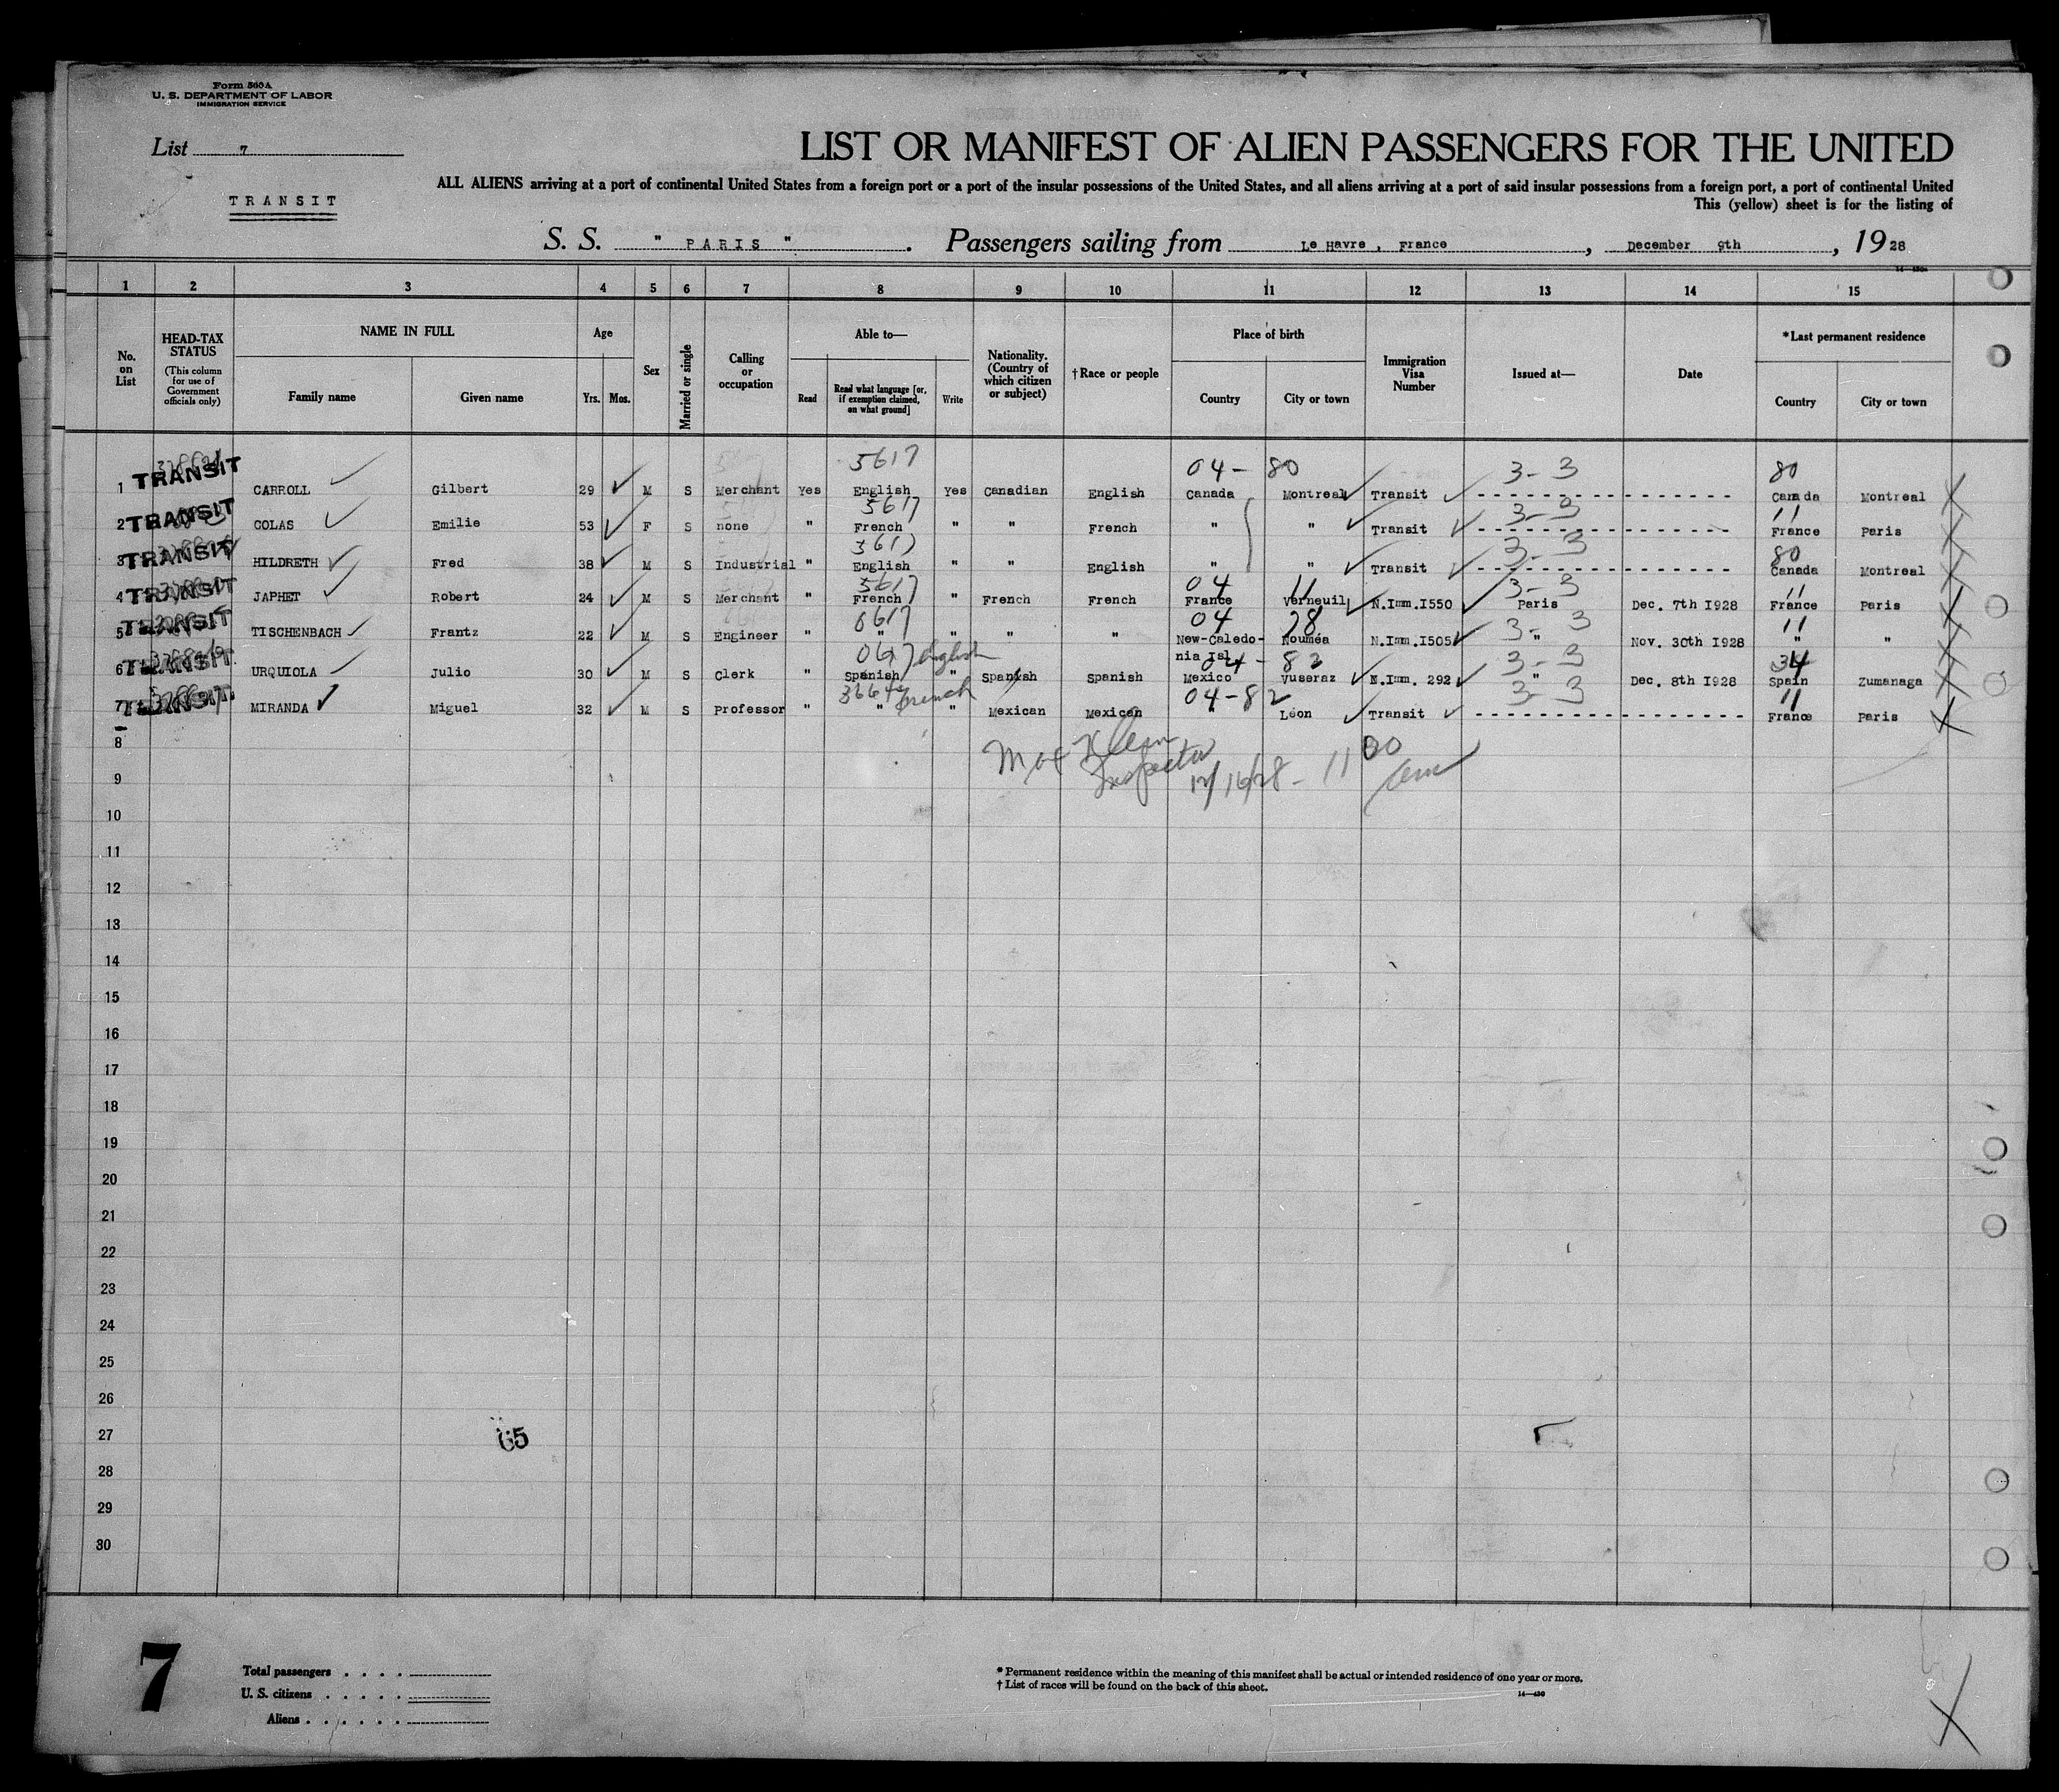 Form 560A
U. S. DEPARTMENT OF LABOR
IMMIGRATION SERVICE
List 7
LIST OR MANIFEST OF ALIEN PASSENGERS FOR THE UNITED
ALL ALIENS arriving at a port of continental United States from a foreign port or a port of the insular possessions of the United States, and all aliens arriving at a port of said insular possessions from a foreign port, a port of continental United
TRANSIT
This (yellow) sheet is for the listing of
S. S. " PARIS ". Passengers sailing from Le Havre, France, December 9th, 1928
1 2 3 4 5 6 7 8 9 10 11 12 13 14 15
No. on List
HEAD-TAX STATUS (This column for use of Government officials only)
NAME IN FULL Family name Given name
Age Yrs. Mos.
Sex
Married or single
Calling or occupation
Able to— Read Read what language [or, if exemption claimed, on what ground] Write
Nationality. (Country of which citizen or subject)
†Race or people
Place of birth Country City or town
Immigration Visa Number
Issued at—
Date
*Last permanent residence Country City or town
5617 04- 80 3-3 80
1 TRANSIT CARROLL Gilbert 29 M S Merchant Yes English Yes Canadian English Canada Montreal Transit Canada Montreal
5617 3-3 11
2 TRANSIT COLAS Emilie 53 F S none " French " " French " " Transit France Paris
3-3 80
3 TRANSIT HILDRETH Fred 38 M S Industrial " English " " English " " Transit Canada Montreal
5617 04 11 3-3 11
4 TRANSIT JAPHET Robert 24 M S Merchant " French " French French France Verneuil N.Imm.1550 Paris Dec. 7th 1928 France Paris
0617 04 28 3-3 11
5 TRANSIT TISCHENBACH Frantz 22 M S Engineer " " " " " New-Caledo- Nouméa N.Imm.1505 " Nov. 30th 1928 " "
nia Isl.
English 04-82 3-3 34
6 TRANSIT URQUIOLA Julio 30 M S Clerk " Spanish " Spanish Spanish Mexico Yuseraz N.Imm. 292 " Dec. 8th 1928 Spain Zumanaga
French 04-82 3-3 11
7 TRANSIT MIRANDA Miguel 32 M S Professor " " " Mexican Mexican " Léon Transit France Paris
8
Inspector
12/16/28 - 11 00 am
9
10
11
12
13
14
15
16
17
18
19
20
21
22
23
24
25
26
27
65
28
29
30
7
Total passengers
U. S. citizens
Aliens
* Permanent residence within the meaning of this manifest shall be actual or intended residence of one year or more.
† List of races will be found on the back of this sheet.
14—430